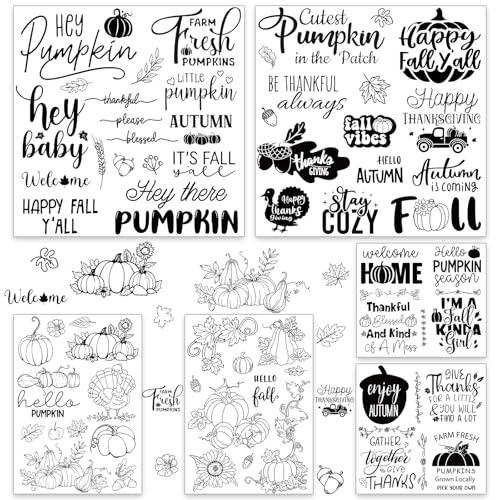 HEY
Pumpkin
FARM
Fresh
PUMPKINS
little
pumpkin
hey
baby
thankful
please
blessed
AUTUMN
IT'S FALL
y'all
Welcome
HAPPY FALL
Y'ALL
Hey there
PUMPKIN
Cutest
Pumpkin
in the Patch
Happy
Fall Y'all
BE THANKFUL
always
Happy
THANKSGIVING
fall
vibes
thanks
GIVING
HELLO
AUTUMN
Autumn
is coming
Happy
Thanks
Giving
stay
COZY
Fall
Welcome
welcome
HOME
Hello
PUMPKIN
season
Thankful
Blessed
And Kind
Of A Mess
I'M A
Fall
KINDA
Girl
hello
PUMPKIN
FARM
Fresh
PUMPKINS
HELLO
fall
Happy
THANKSGIVING
enjoy
AUTUMN
GIVE
Thanks
FOR A LITTLE
& YOU WILL
FIND A LOT
GATHER
Together
GIVE
THANKS
FARM FRESH
PUMPKINS
Grown Locally
PICK YOUR OWN